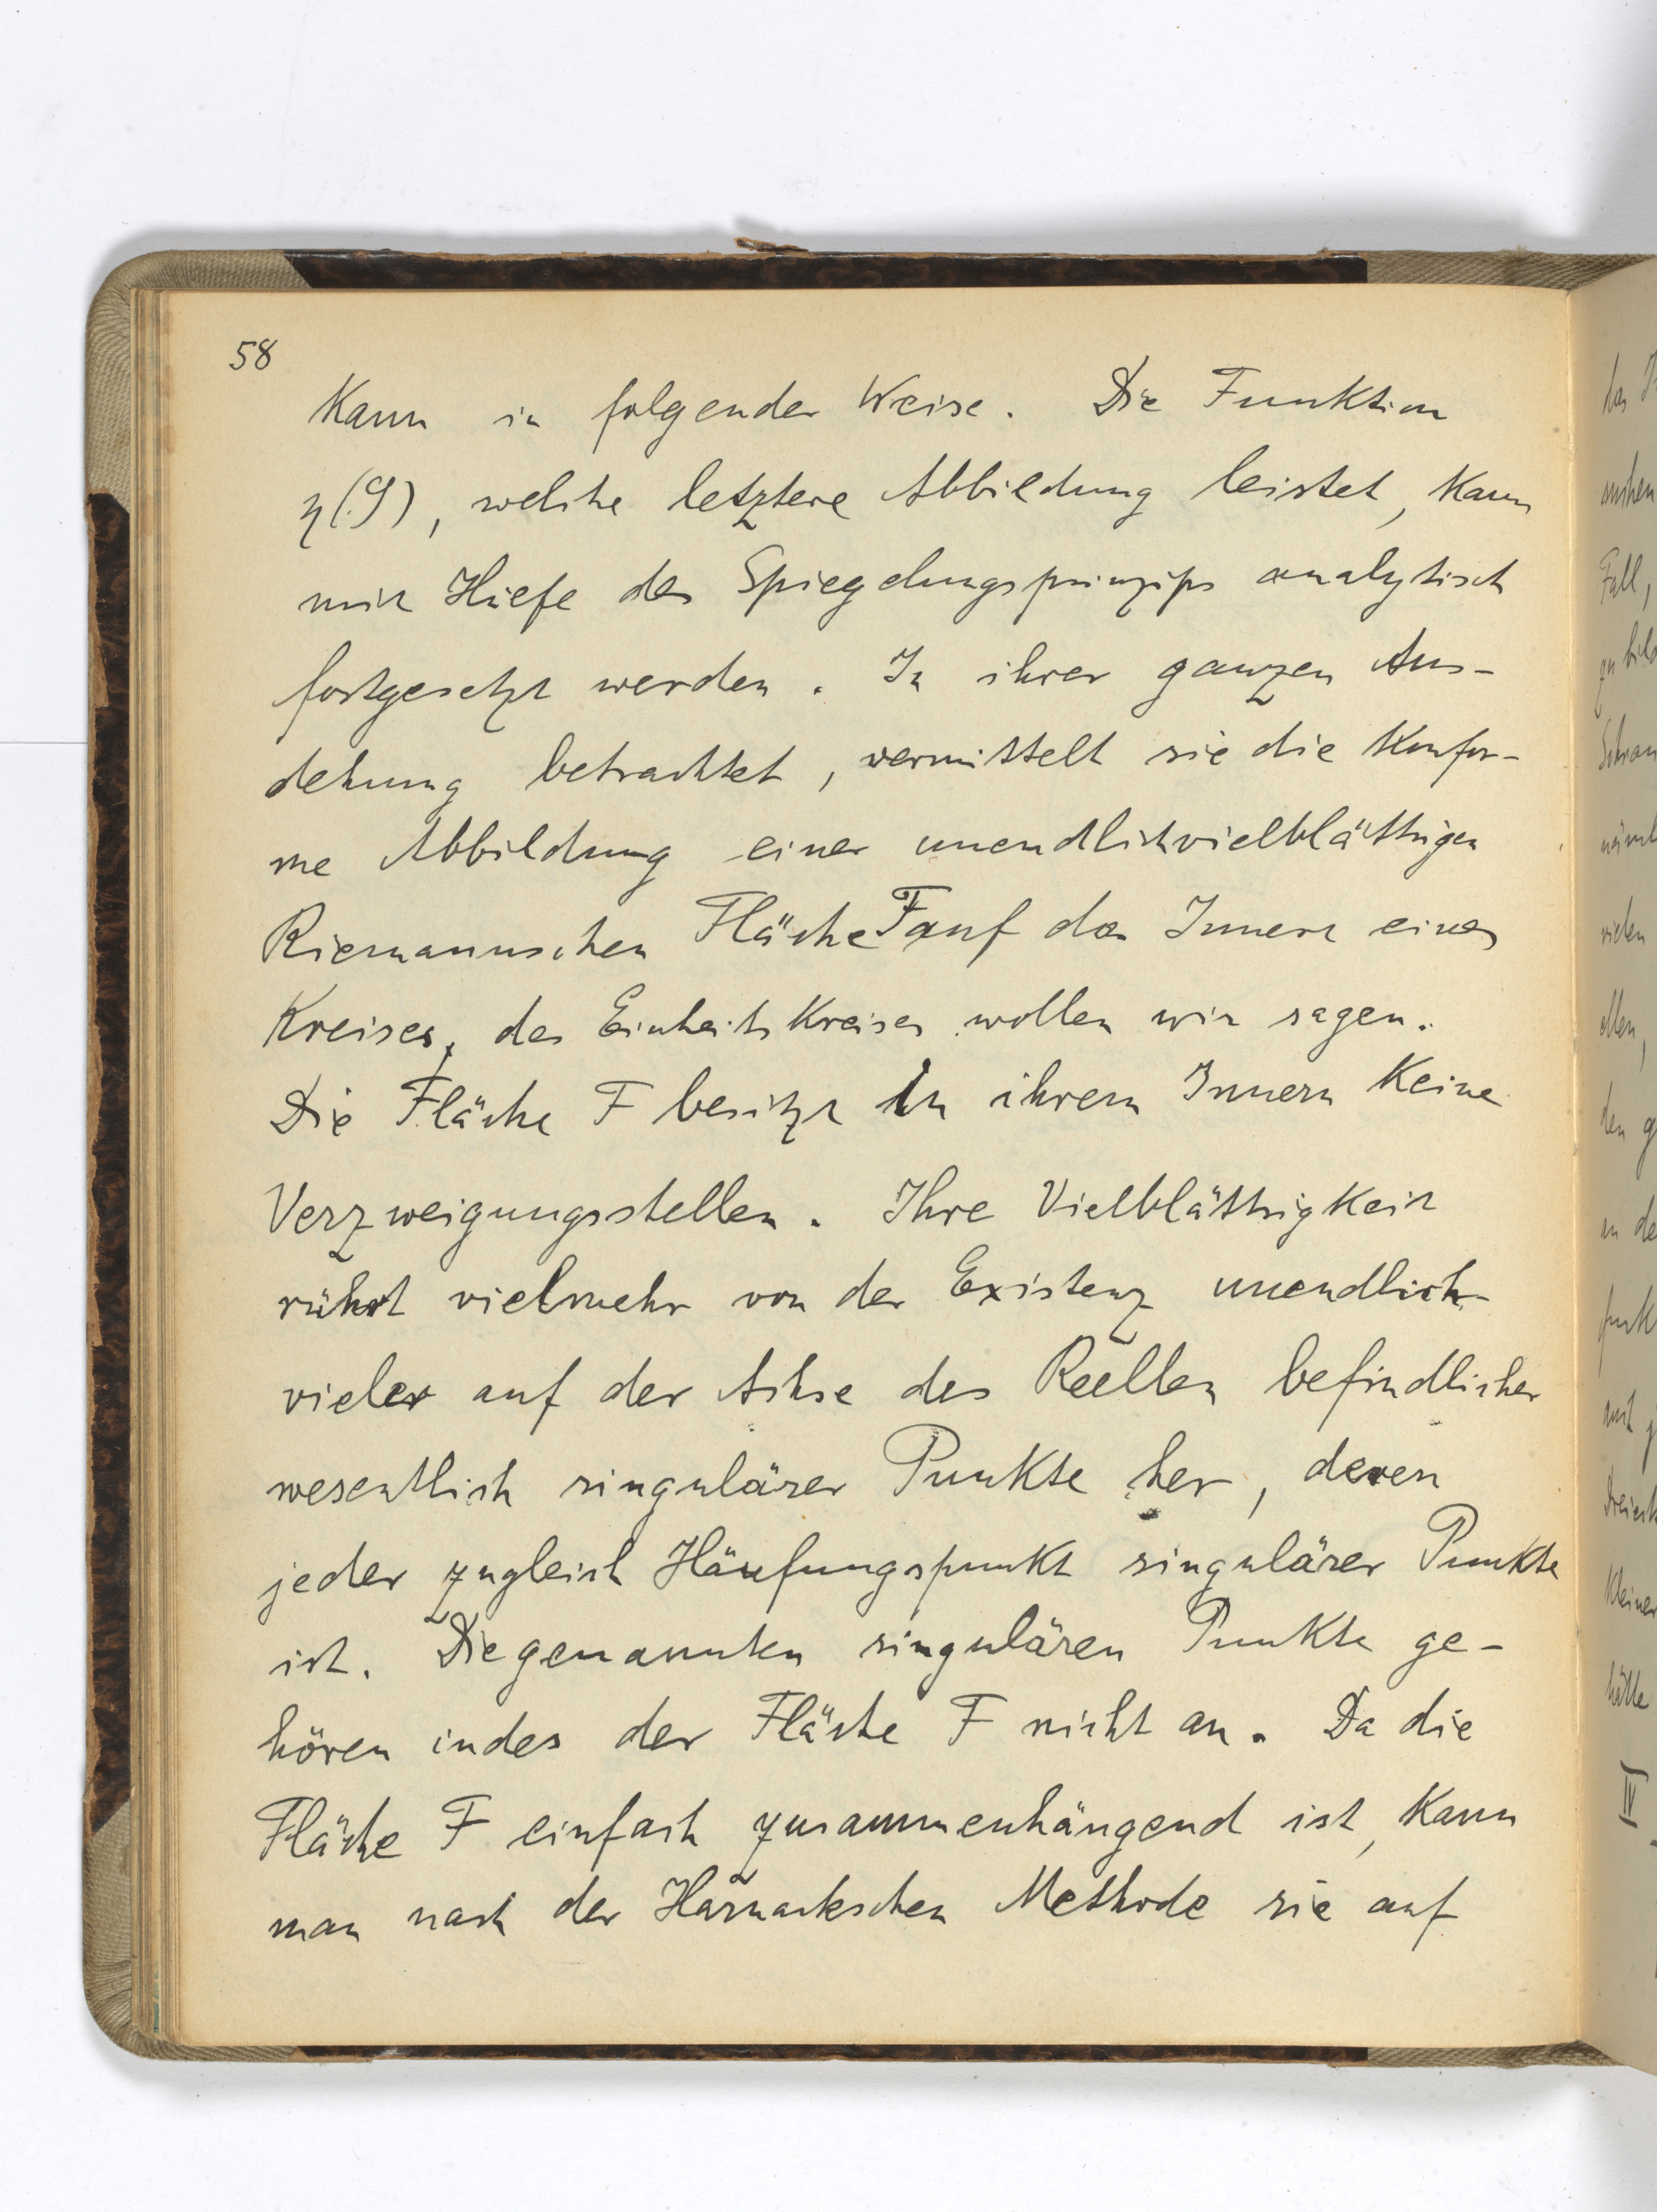 58
kann in folgender Weise. Die Funktion
η(ζ), welche letztere Abbildung leistet, kann
mit Hilfe des Spiegelungsprinzips analytisch
fortgesetzt werden. In ihrer ganzen Aus-
dehnung betrachtet, vermittelt sie die konfor-
me Abbildung einer unendlichvielblättrigen
Riemannschen Fläche F auf das Innere eines
Kreises, des Einheitskreises wollen wir sagen.
Die Fläche F besitzt in ihrem Innern keine
Verzweigungsstellen. Ihre Vielblättrigkeit
rührt vielmehr von der Existenz unendlich-
vieler auf der Achse des Reellen befindlicher
wesentlich singulärer Punkte her, deren
jeder zugleich Häufungspunkt singulärer Punkte
ist. Die genannten singulären Punkte ge-
hören indes der Fläche F nicht an. Da die
Fläche F einfach zusammenhängend ist, kann
man nach der Harnackschen Methode sie auf
IV